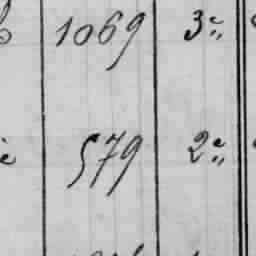 1069 3e
579 2e